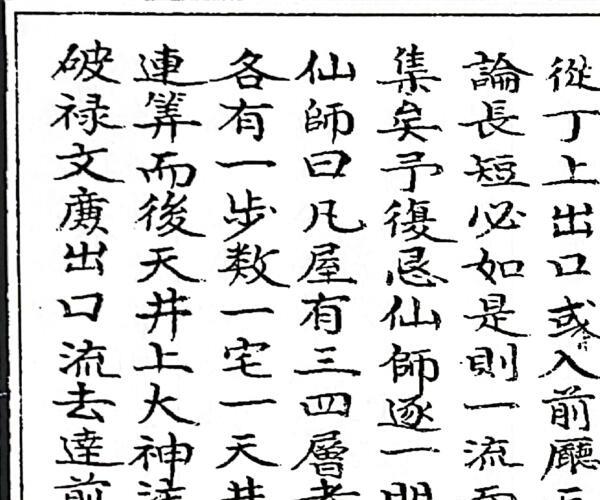 從丁上出口或入前廳
論長短必如是則一流
集矣予復恳仙師逐一
仙師曰凡屋有三四層者
各有一步数一宅一天井
連筭而後天井上火神
破禄文廣出口流去達前